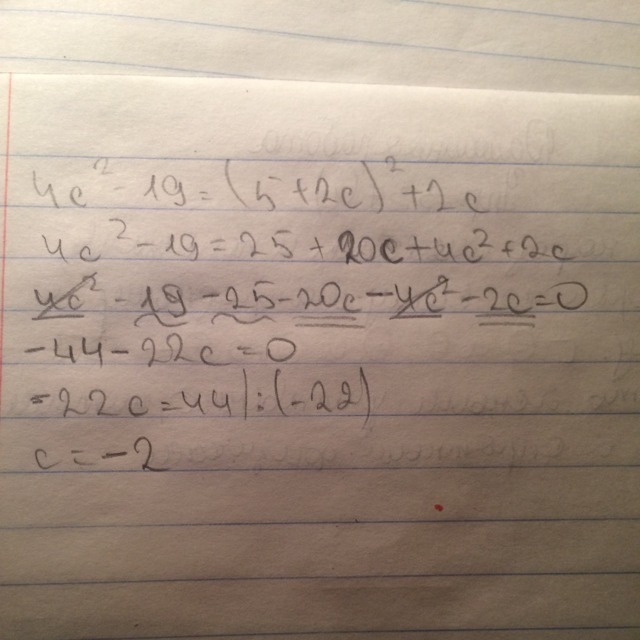 4c² - 19 = (5 + 2c)² + 2c
4c² - 19 = 25 + 20c + 4c² + 2c
4c² - 19 - 25 - 20c - 4c² - 2c = 0
-44 - 22c = 0
-22c = 44 | : (-22)
c = -2